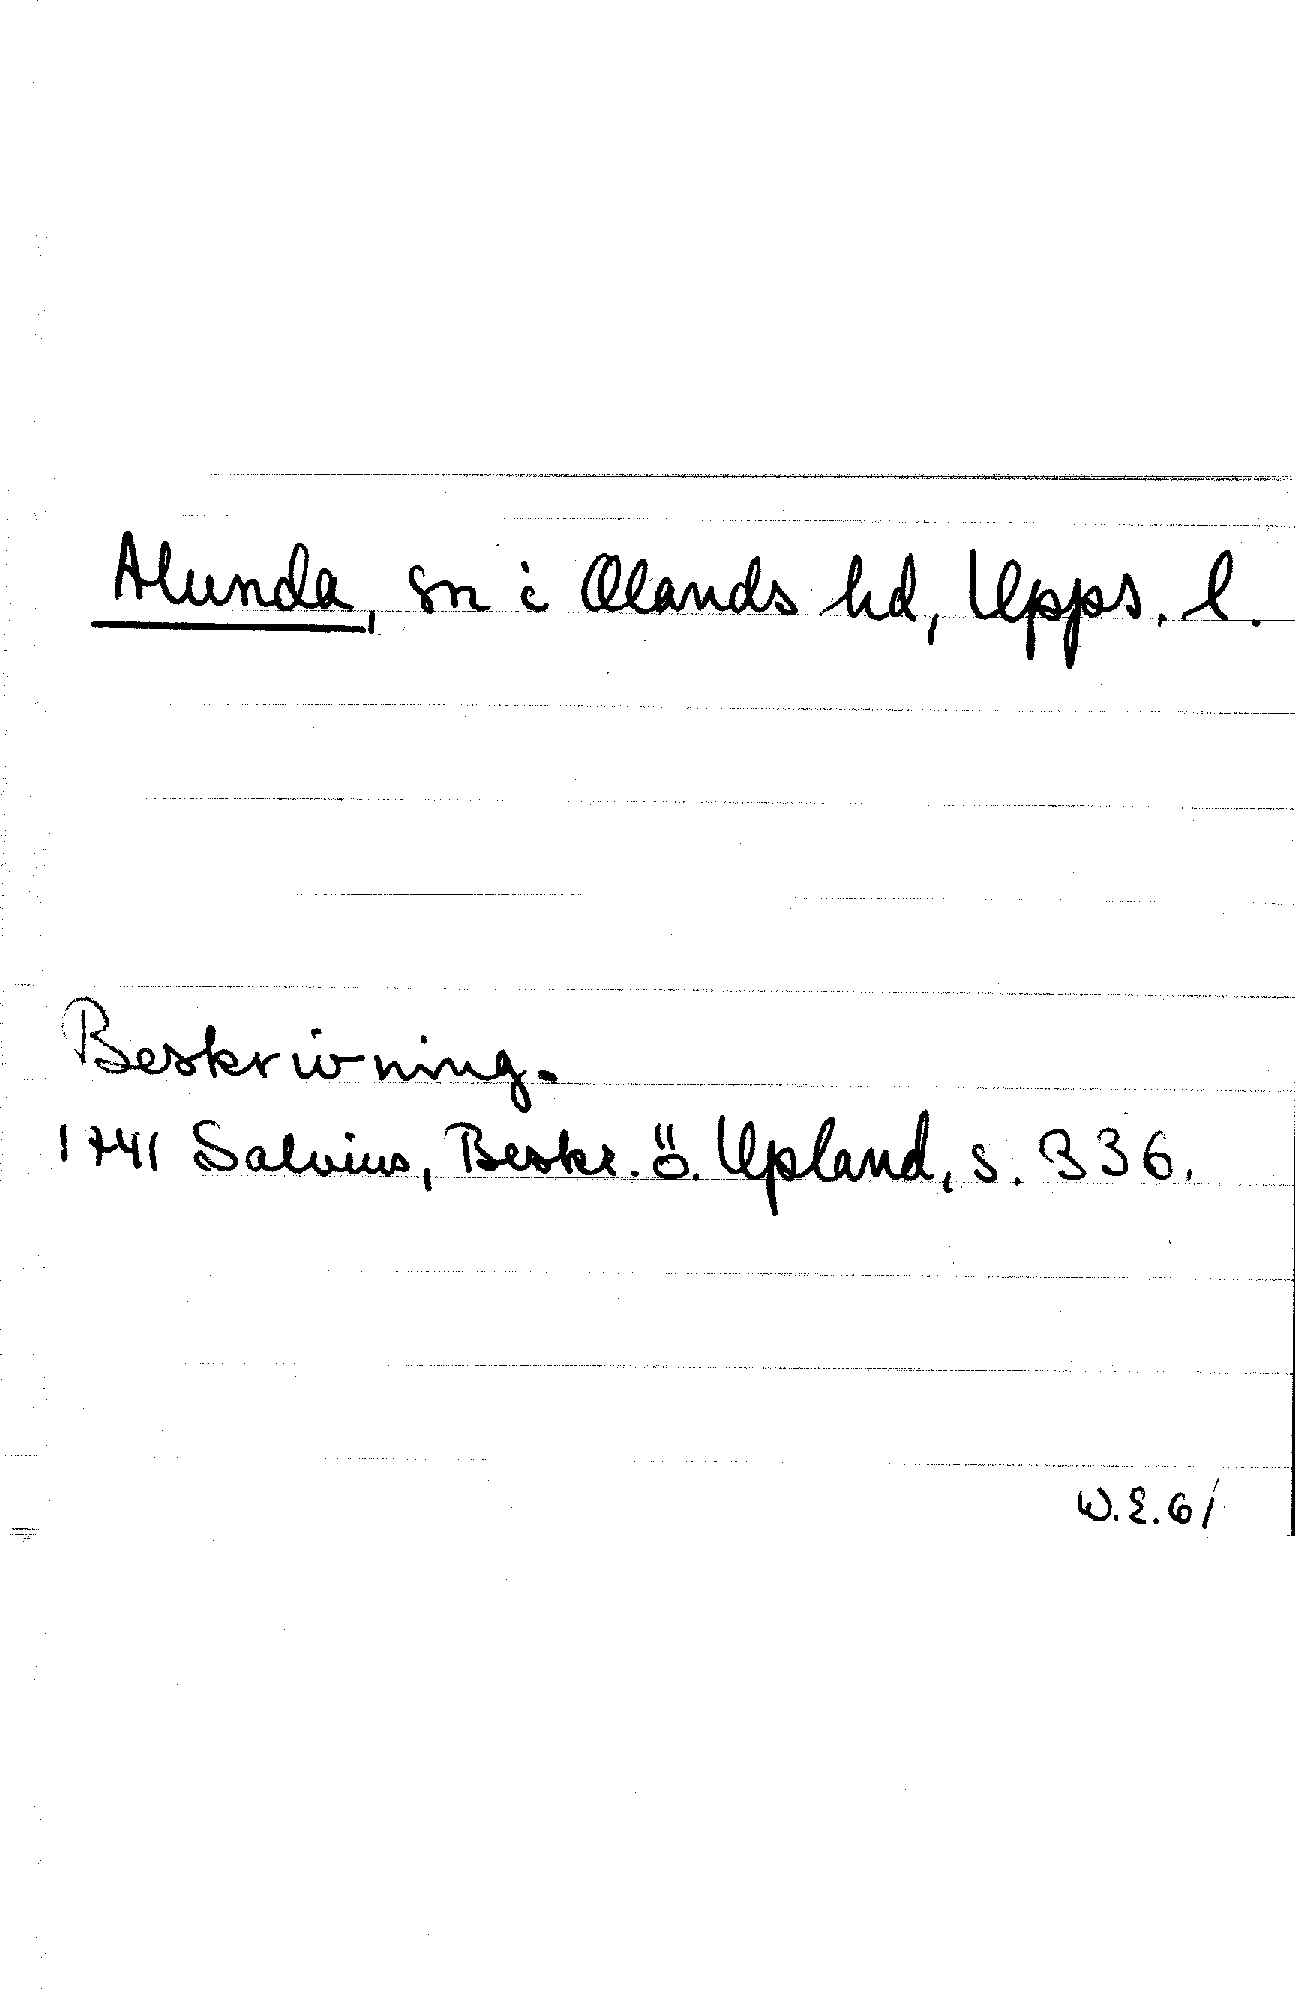 Alunda, sn i Olands hd, Upps. l.
Beskrivning.
1741 Salvius, Beskr. ö. Upland, s. 336.
W.E.61